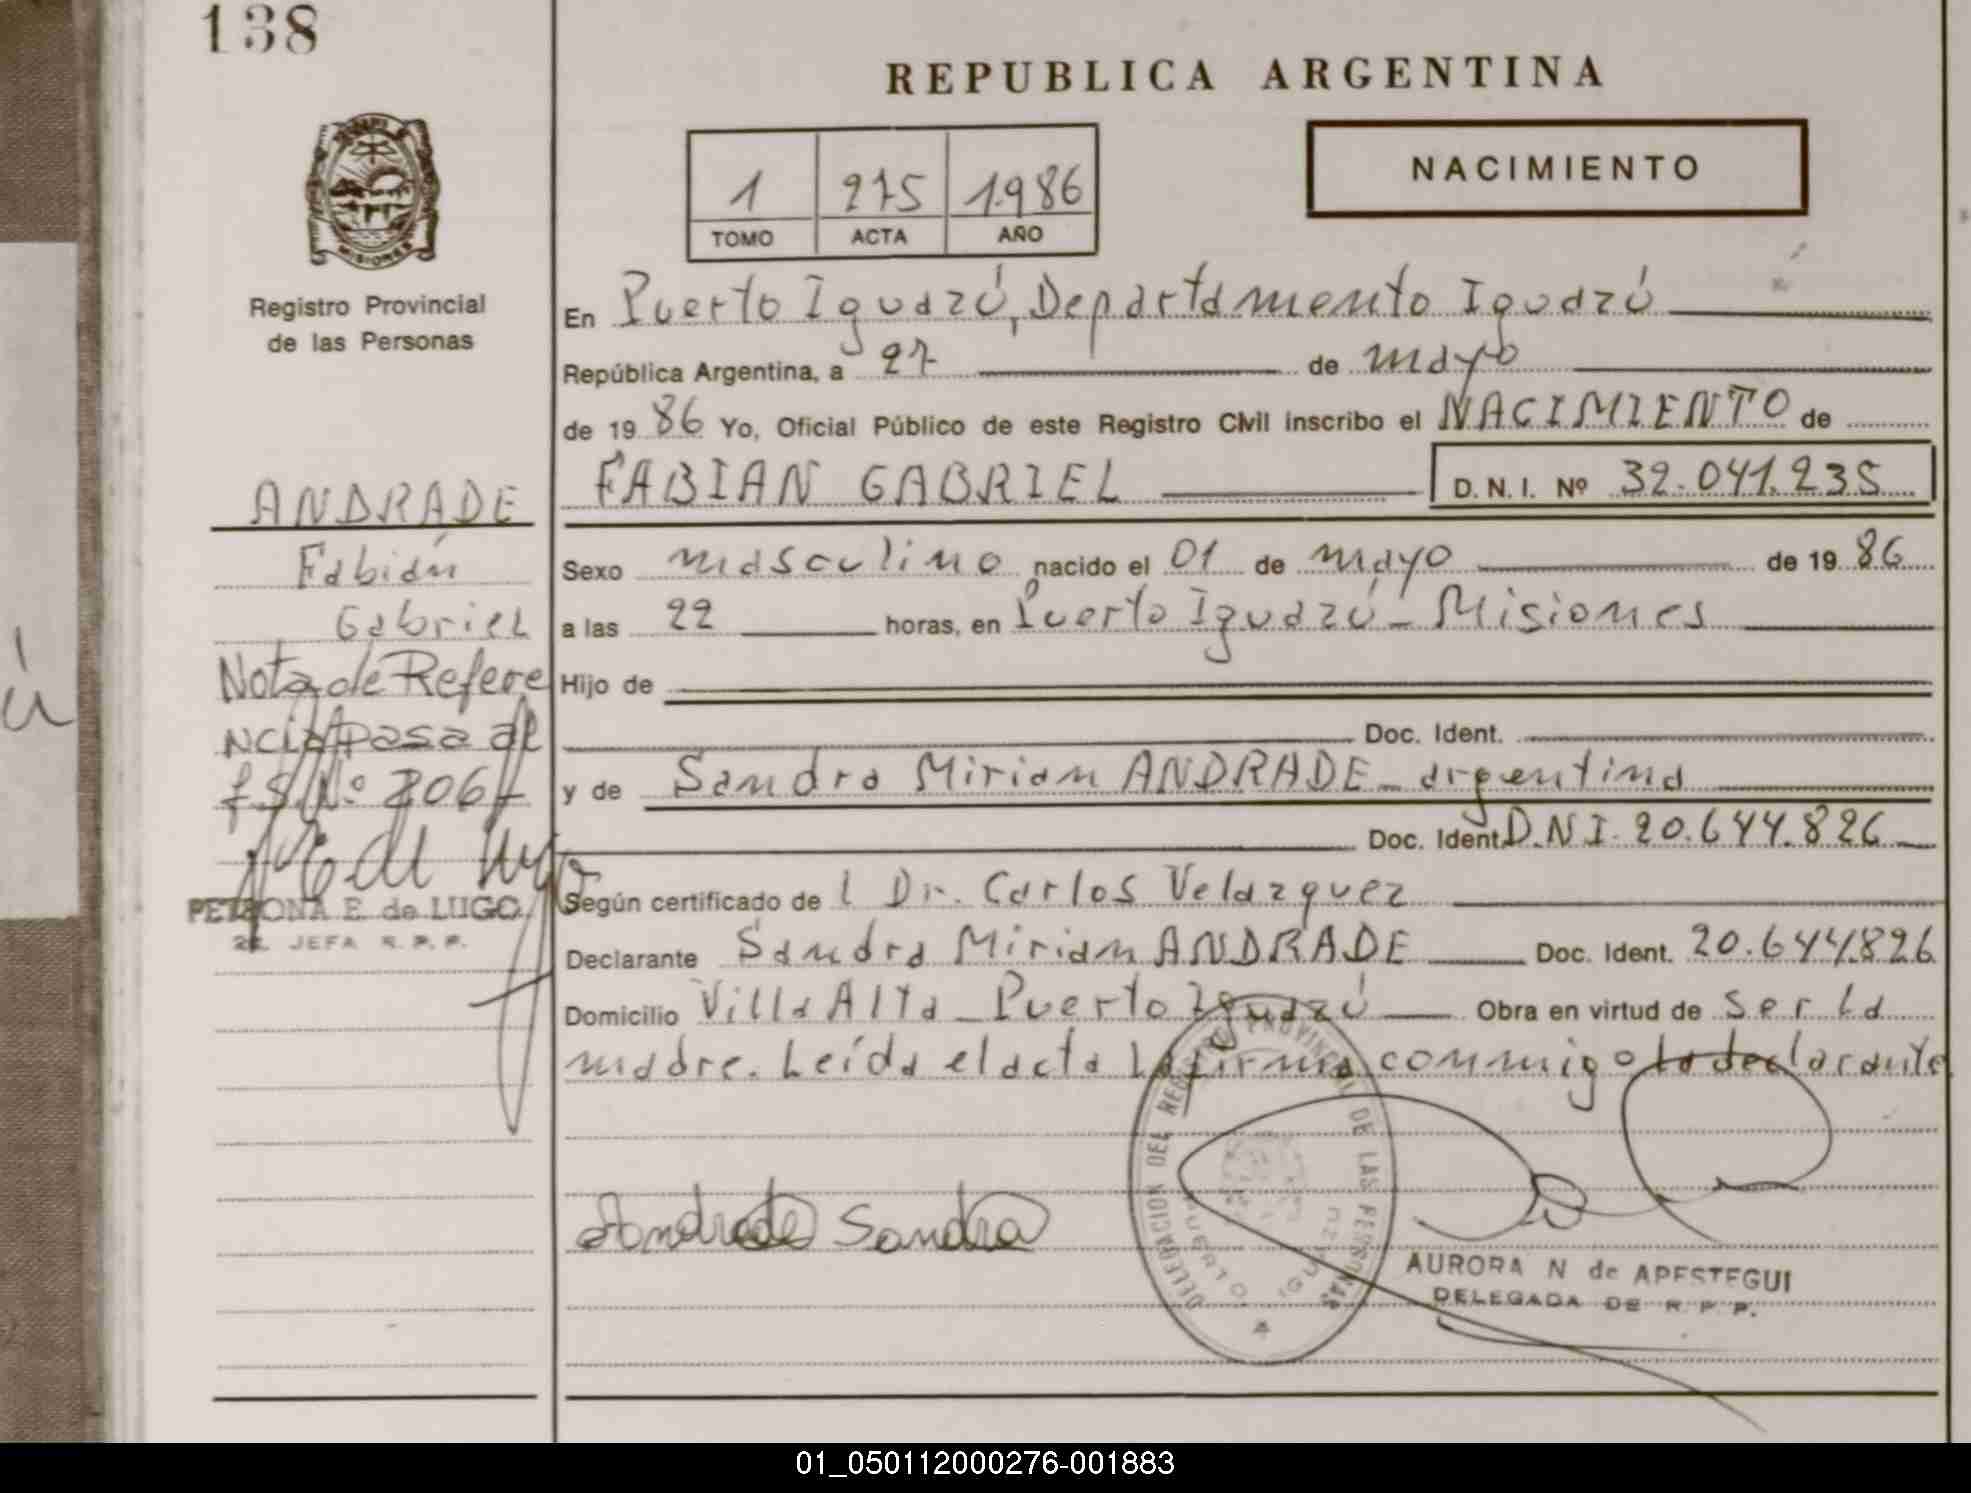 138
REPUBLICA ARGENTINA
NACIMIENTO
1 275 1.986
TOMO ACTA AÑO
MISIONES
Registro Provincial
de las Personas
En Puerto Iguazú, Departamento Iguazú
República Argentina, a 27 de mayo
de 19 86 Yo, Oficial Público de este Registro Civil inscribo el NACIMIENTO de
FABIAN GABRIEL D.N.I. Nº 32.041.235
ANDRADE
Fabián
Gabriel
Nota de Refere
ncia pasa al
fs Nº 206
PETRONA E. de LUGO
2a. JEFA R.P.P.
Sexo masculino nacido el 01 de mayo de 19 86
a las 22 horas, en Puerto Iguazú - Misiones
Hijo de
Doc. Ident.
y de Sandra Miriam ANDRADE - argentina
Doc. Ident. D.N.I. 20.644.826
Según certificado de l Dr. Carlos Velazquez
Declarante Sandra Miriam ANDRADE Doc. Ident. 20.644.826
Domicilio Villa Alta - Puerto Iguazú Obra en virtud de ser la
madre. Leída el acta la firma conmigo la declarante
DELEGACION DEL REGISTRO PROVINCIAL DE LAS PERSONAS
PUERTO IGUAZU
Andrade Sandra
AURORA N de APESTEGUI
DELEGADA DE R.P.P.
01_050112000276-001883